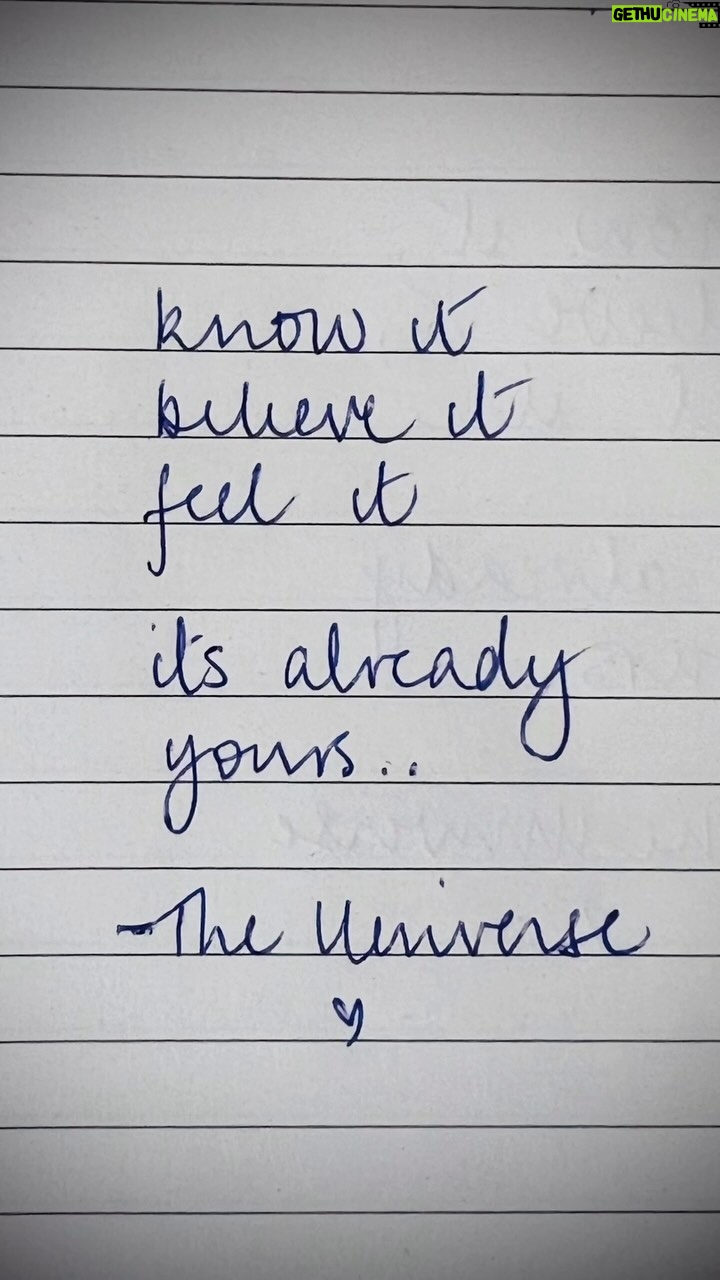 GETHUCINEMA
know it
believe it
feel it
it's already
yours..
-The Universe